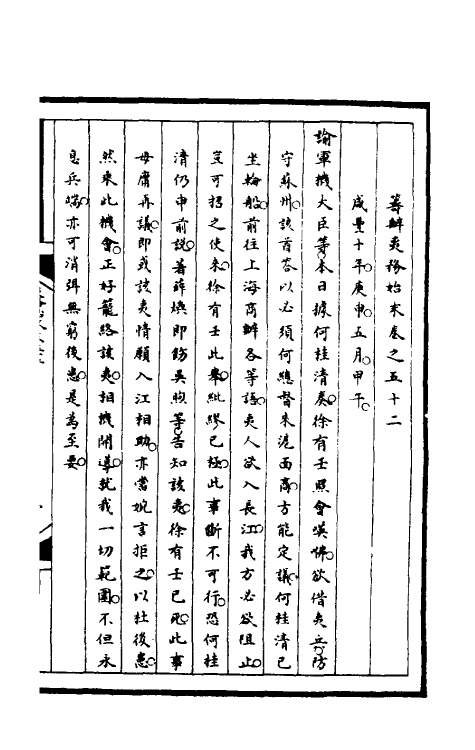 籌辦夷務始末卷之五十二
咸豐十年。庚申。五月。甲午。
諭軍機大臣等。本日據何桂清奏。徐有壬照會㗎㖠。欲借夷兵。防
守蘇州。該酋答以必須何總督來滬面商。方能定議。何桂清已
坐輪船。前往上海商辦各等語。夷人欲入長江。我方必欲阻止。
豈可招之使來。徐有壬此舉。紕繆已極。此事斷不可行。恐何桂
清仍申前說。著薛煥即飭吳煦等。告知該夷。徐有壬已死。此事
毋庸再議。即或該夷情願入江相助。亦當婉言拒之。以杜後患。
然乘此機會。正好籠絡該夷。相機開導。就我一切範圍。不但永
息兵端。亦可消弭無窮後患。是為至要。